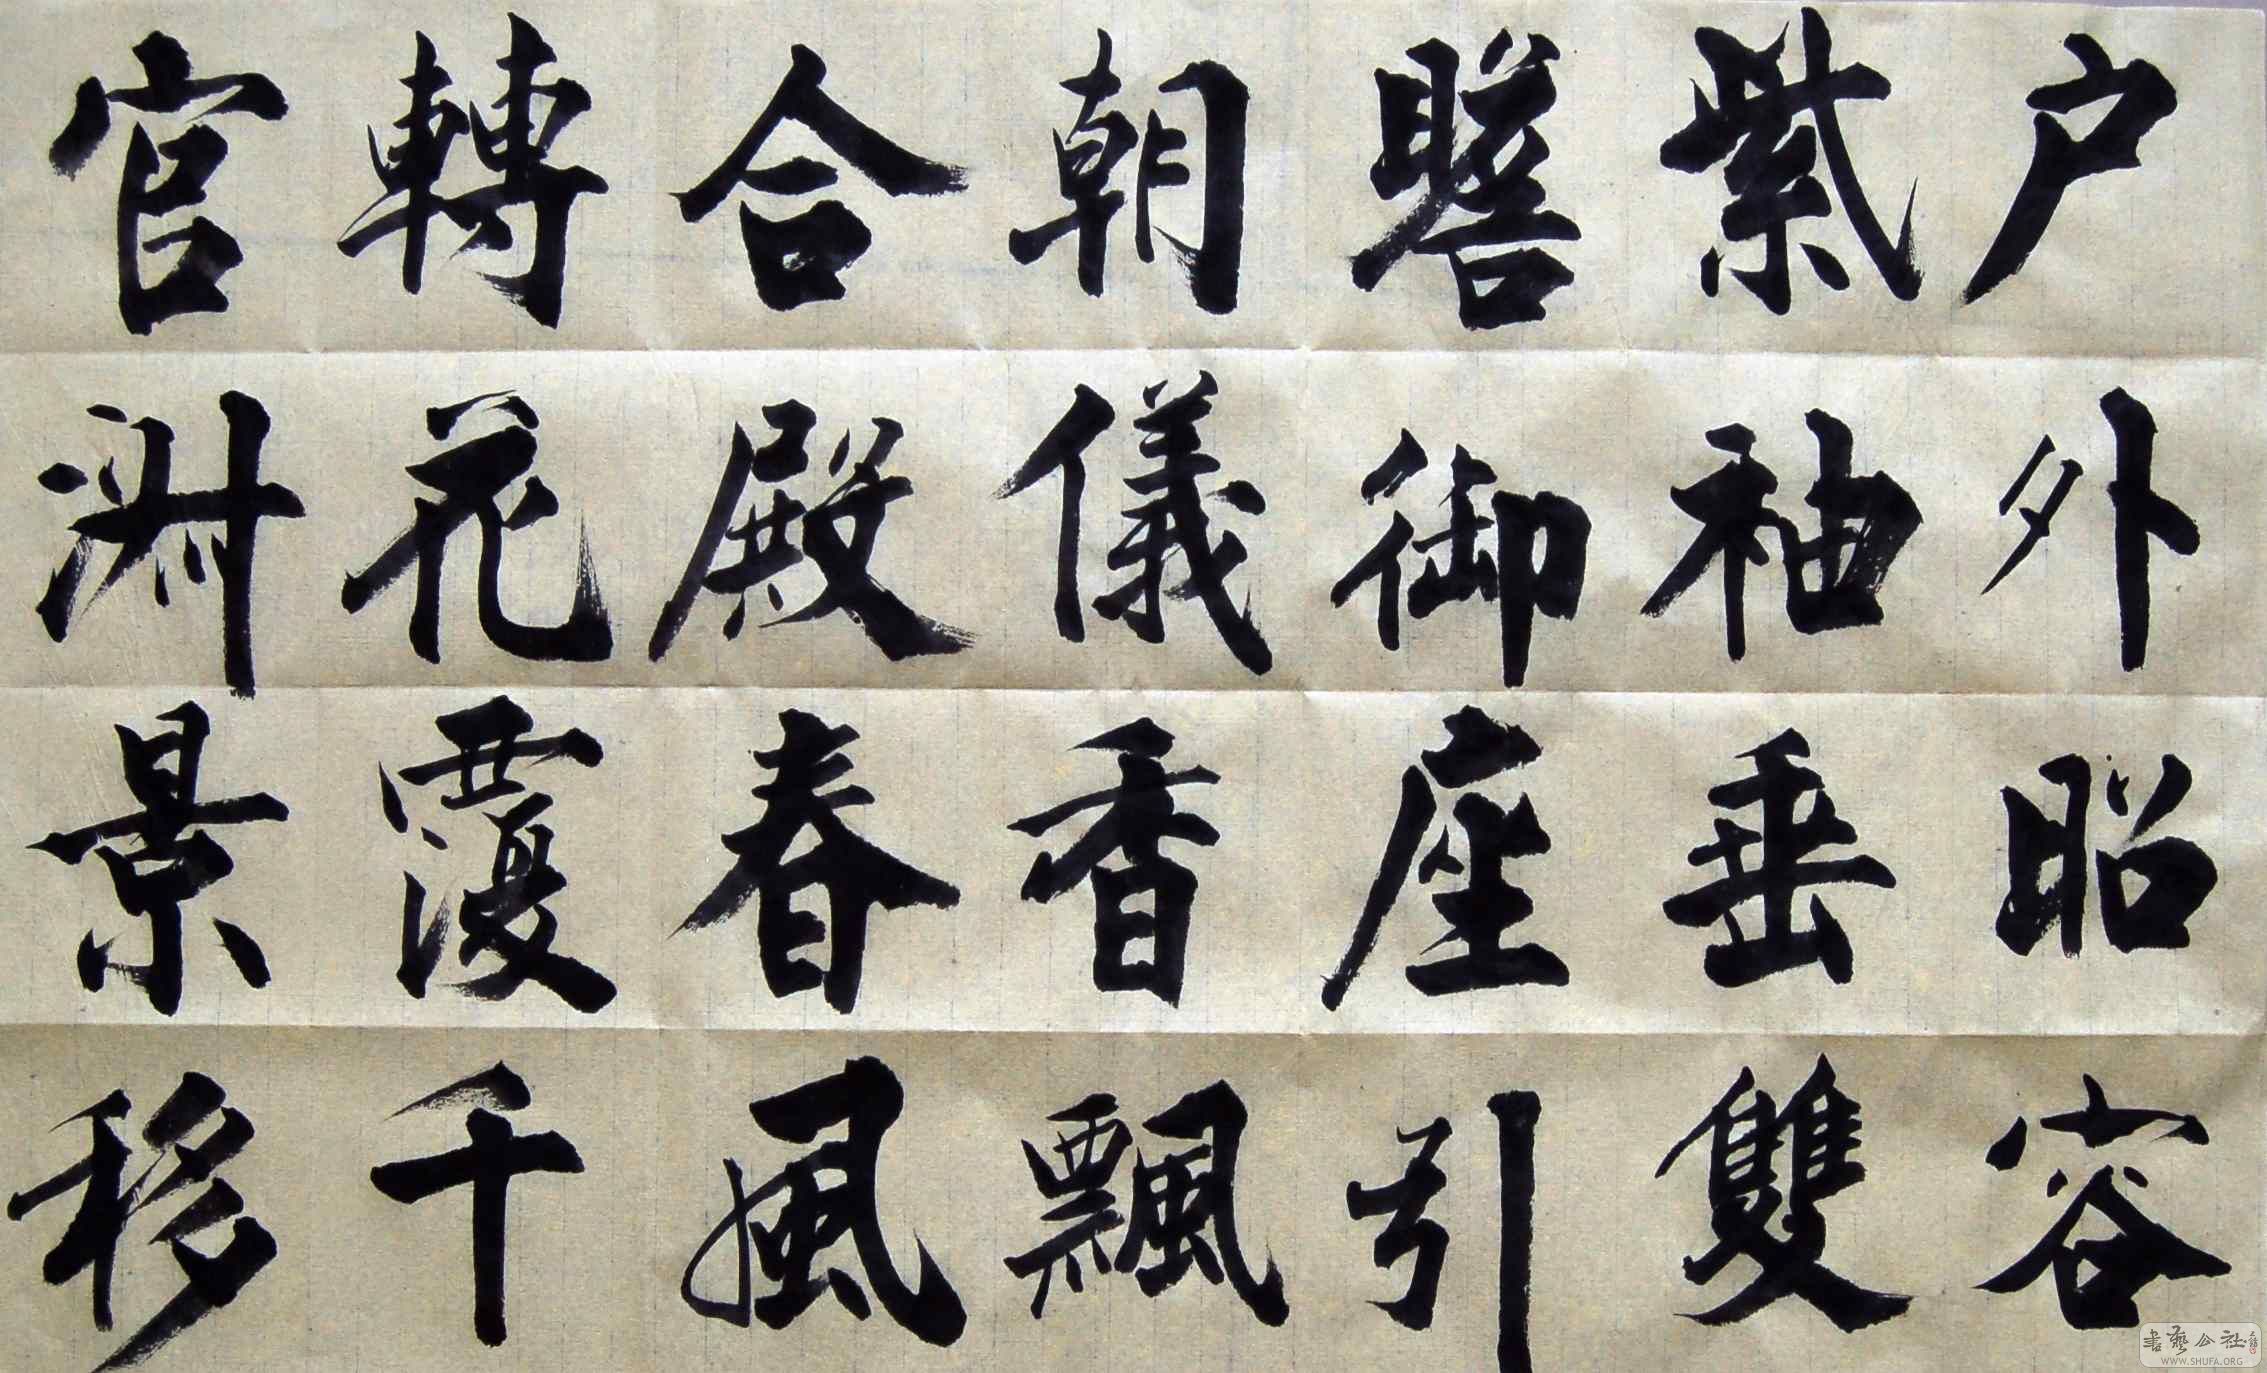 户外昭容
紫袖垂雙
瞻御座引
朝儀香飄
合殿春風
轉花覆千
官淑景移
書藝公社
WWW.SHUFA.ORG